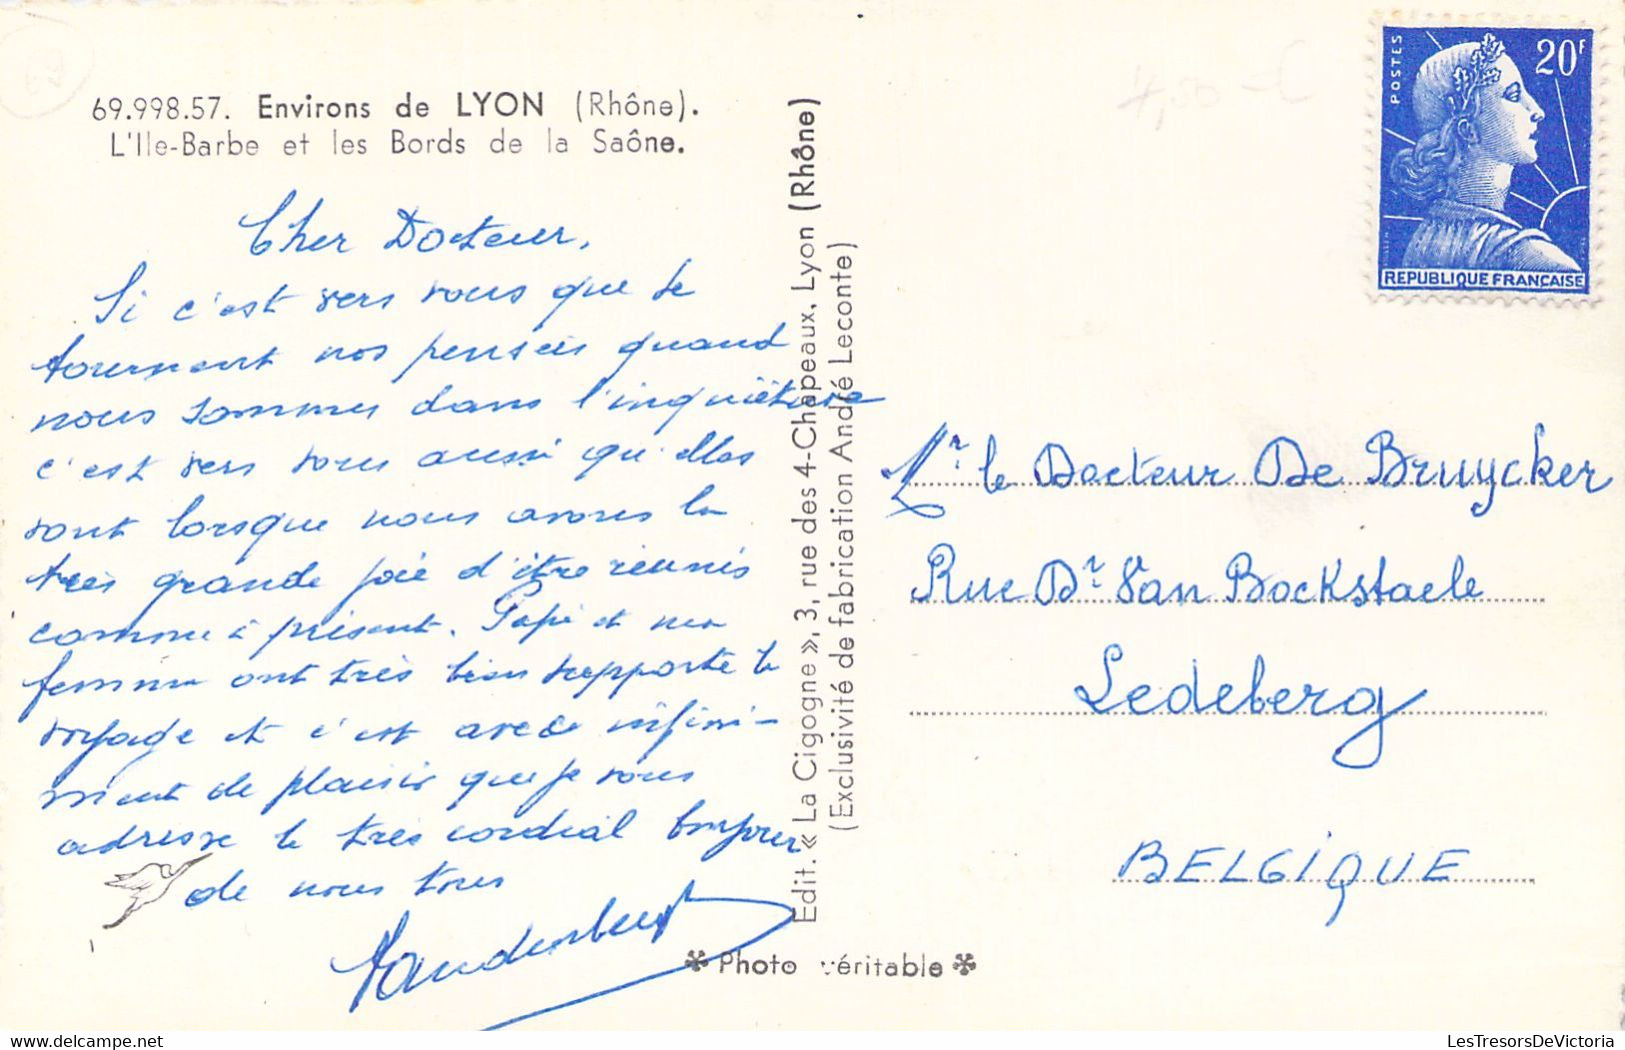 69.998.57. Environs de LYON (Rhône).
L'Ile-Barbe et les Bords de la Saône.
Cher Docteur,
Si c'est vers vous que se
tournent nos pensées quand
nous sommes dans l'inquiétude
c'est vers vous aussi qu'elles
vont lorsque nous avons la
très grande joie d'être réunis
comme à présent. Papa et ma
femme ont très bien supporté le
voyage et c'est avec infini-
ment de plaisir que je vous
adresse le très cordial bonjour
de nous tous
Edit. « La Cigogne », 3, rue des 4-Chapeaux, Lyon (Rhône)
(Exclusivité de fabrication André Leconte)
✻ Photo véritable ✻
POSTES
20F
REPUBLIQUE FRANÇAISE
Mr. le Docteur De Bruycker
Rue Dr. Van Bockstaele
Ledeberg
BELGIQUE
delcampe.net
LesTresorsDeVictoria